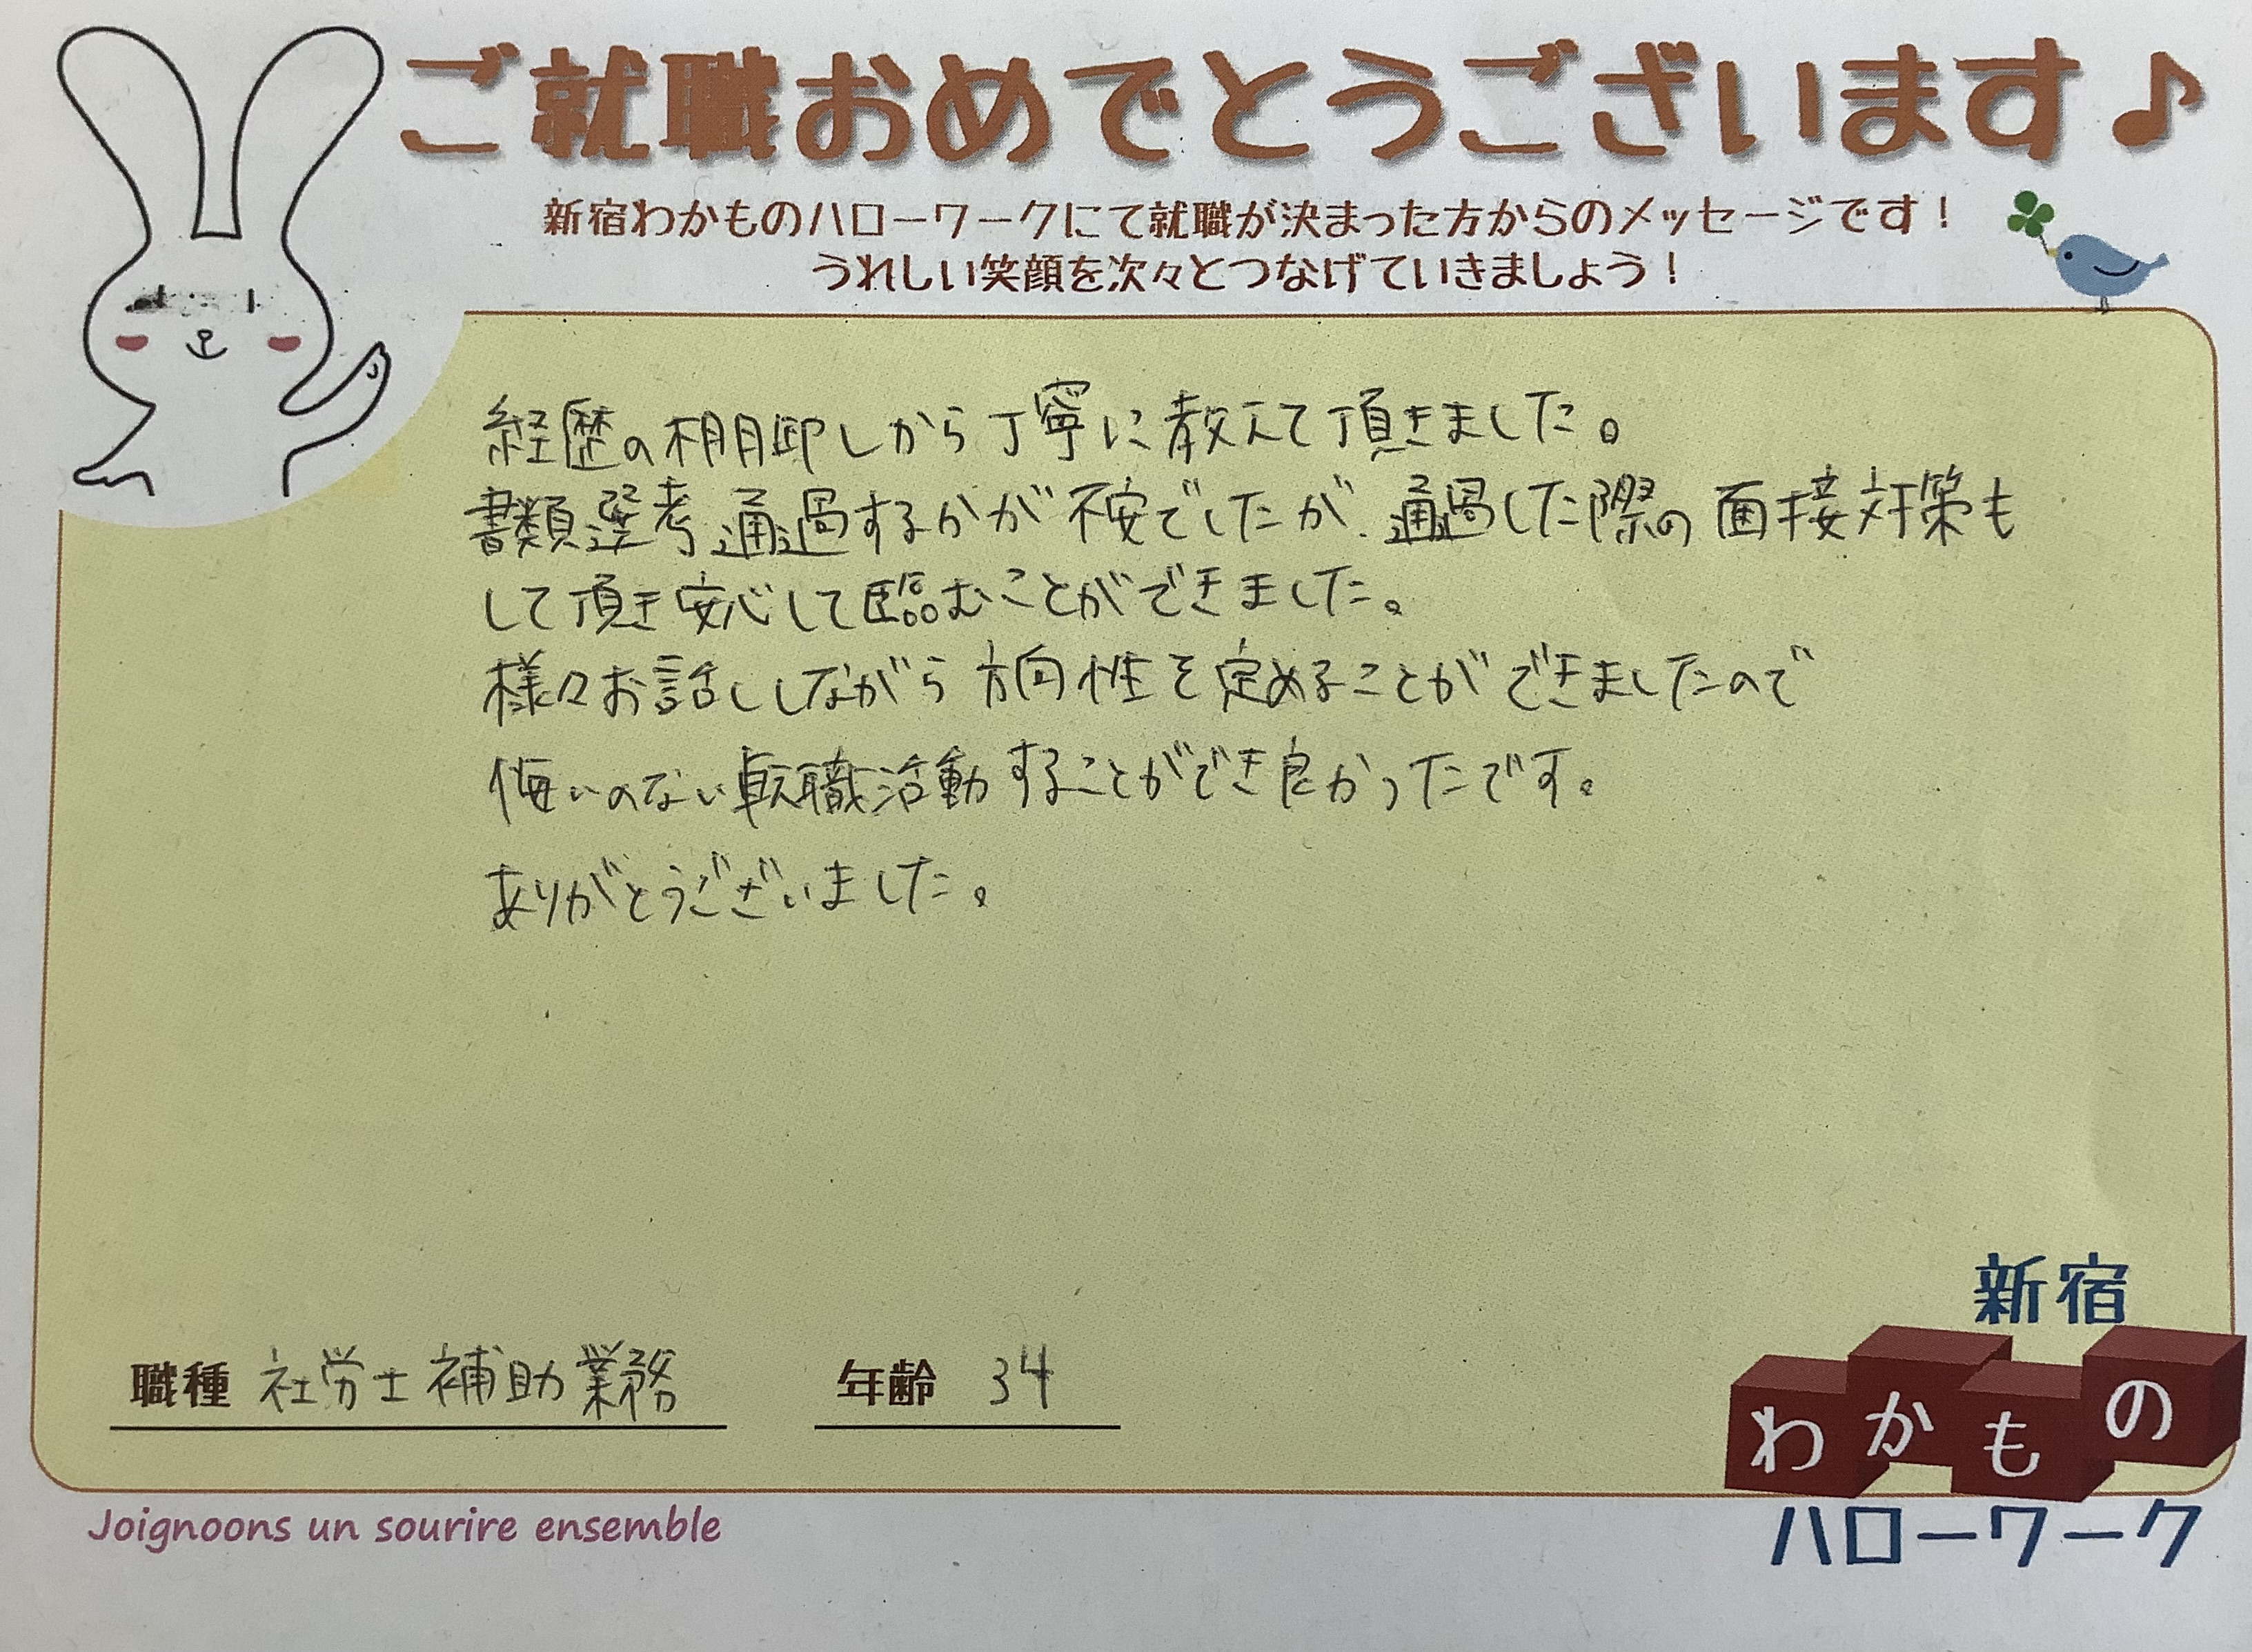 ご就職おめでとうございます♪
新宿わかものハローワークにて就職が決まった方からのメッセージです！
うれしい笑顔を次々とつなげていきましょう！
経歴の棚卸しから丁寧に教えて頂きました。
書類選考通過するかが不安でしたが、通過した際の面接対策も
して頂き安心して臨むことができました。
様々お話ししながら方向性を定めることができましたので
悔いのない転職活動することができ良かったです。
ありがとうございました。
職種 社労士補助業務
年齢 34
新宿
わかもの
ハローワーク
Joignoons un sourire ensemble